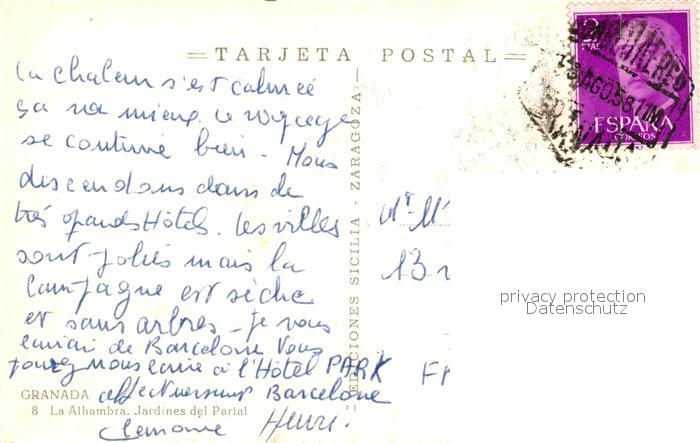 TARJETA POSTAL
La chaleur s'est calmée
ça va mieux. Le voyage
se continue bien - Nous
descendons dans de
très grands Hôtels. Les villes
sont jolies mais la
campagne est sèche
et sans arbres - Je vous
écrirai de Barcelone Vous
pouvez nous écrire à l'Hôtel PARK
affectueusement Barcelone
Clemome Henri.
GRANADA
8 La Alhambra. Jardines del Partal
EDICIONES SICILIA - ZARAGOZA
2
PTAS
CORREO AEREO
AGO.58
ESPAÑA
CORREOS
13
privacy protection
Datenschutz